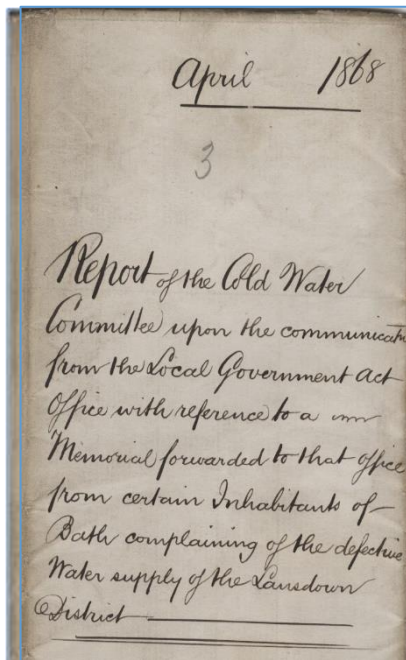 April 1868
3
Report of the Cold Water
Committee upon the communicatn
from the Local Government Act
Office with reference to a
Memorial forwarded to that office
from certain Inhabitants of
Bath complaining of the defective
Water supply of the Lansdown
District